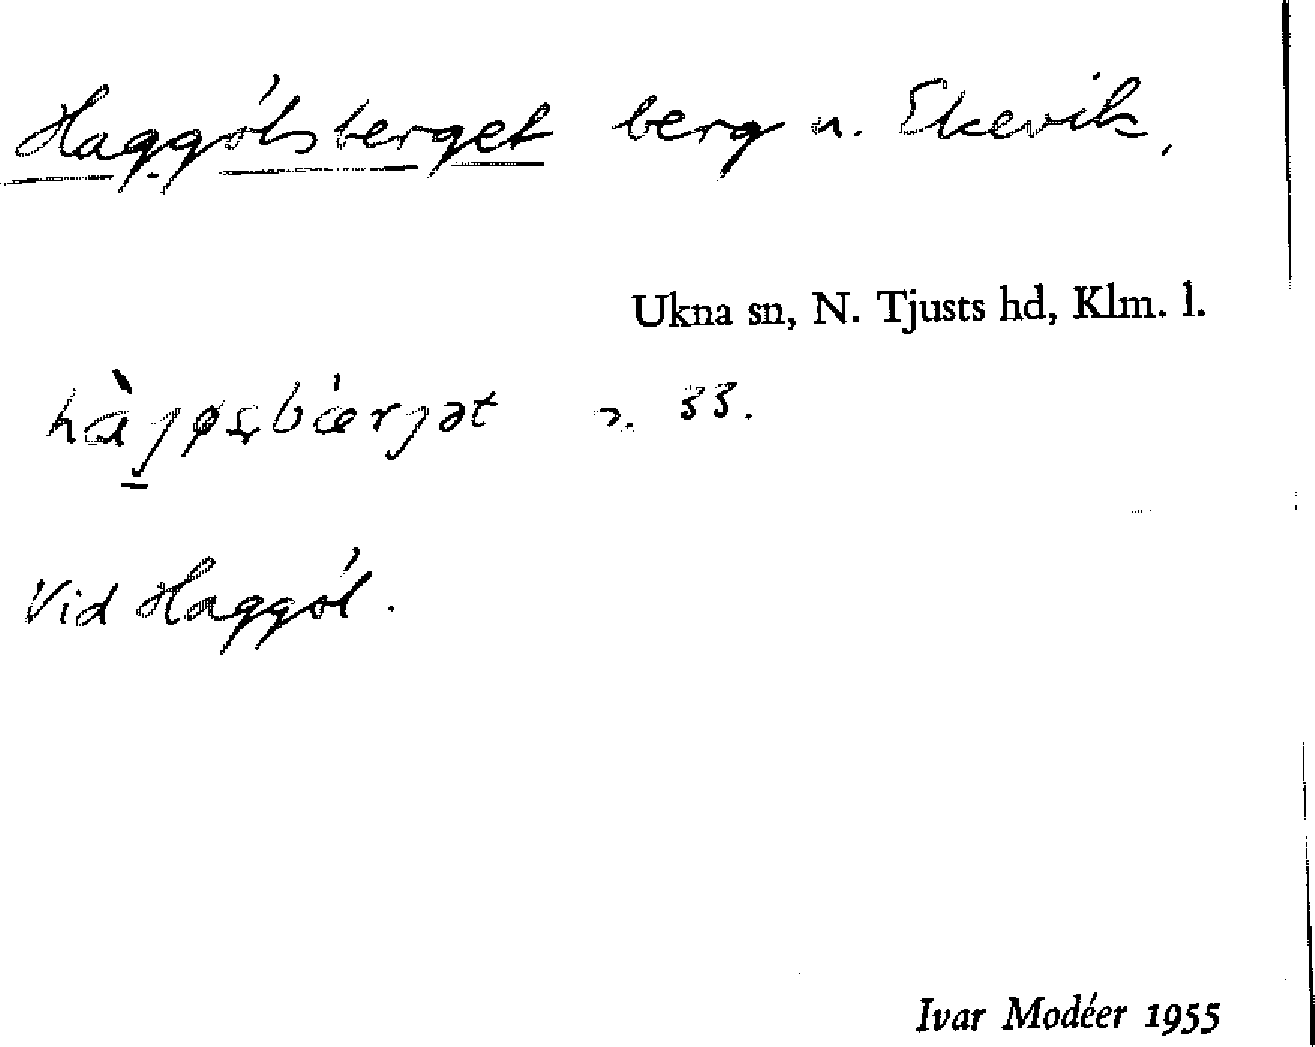 Haggölsberget berg u. Ekevik,
Ukna sn, N. Tjusts hd, Klm. l.
33.
Vid Haggöl.
Ivar Modéer 1955